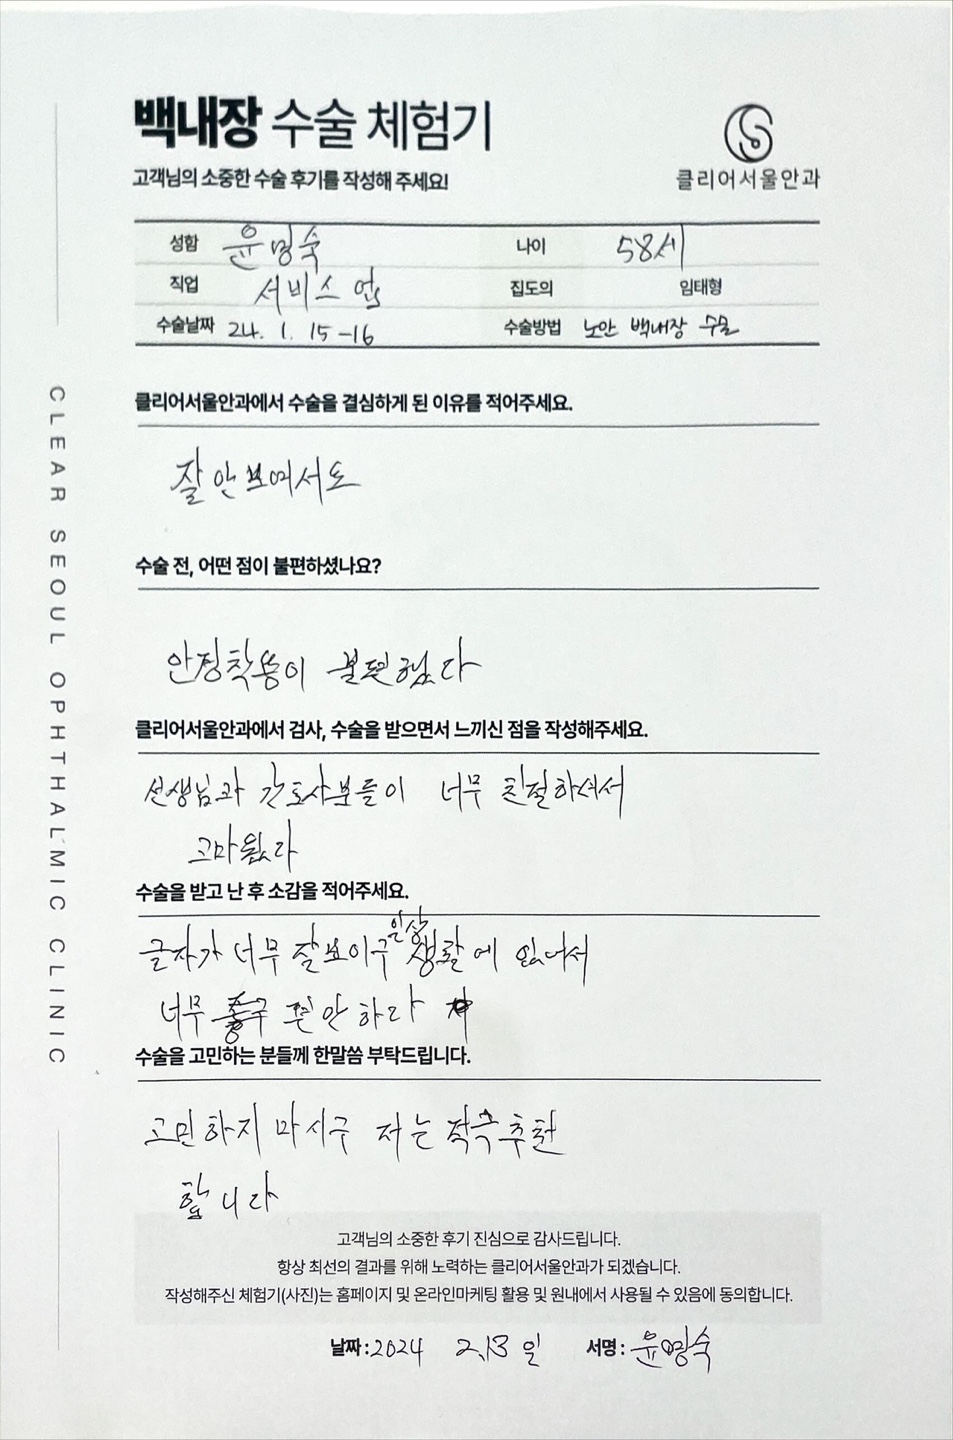 백내장 수술 체험기
고객님의 소중한 수술 후기를 작성해 주세요!
클리어서울안과
성함 윤명숙 나이 58세
직업 서비스업 집도의 임태형
수술날짜 24. 1. 15-16 수술방법 노안 백내장 수술
클리어서울안과에서 수술을 결심하게 된 이유를 적어주세요.
잘 안보여서도
수술 전, 어떤 점이 불편하셨나요?
안경착용이 불편했다
클리어서울안과에서 검사, 수술을 받으면서 느끼신 점을 작성해주세요.
선생님과 간호사분들이 너무 친절하셔서
고마웠다
수술을 받고 난 후 소감을 적어주세요.
글자가 너무 잘보이구 일상생활에 있어서
너무 편안하다
수술을 고민하는 분들께 한말씀 부탁드립니다.
고민하지 마시구 저는 적극추천
합니다
고객님의 소중한 후기 진심으로 감사드립니다.
항상 최선의 결과를 위해 노력하는 클리어서울안과가 되겠습니다.
작성해주신 체험기(사진)는 홈페이지 및 온라인마케팅 활용 및 원내에서 사용될 수 있음에 동의합니다.
날짜 : 2024 2.13 일 서명 : 윤명숙
CLEAR SEOUL OPHTHALMIC CLINIC